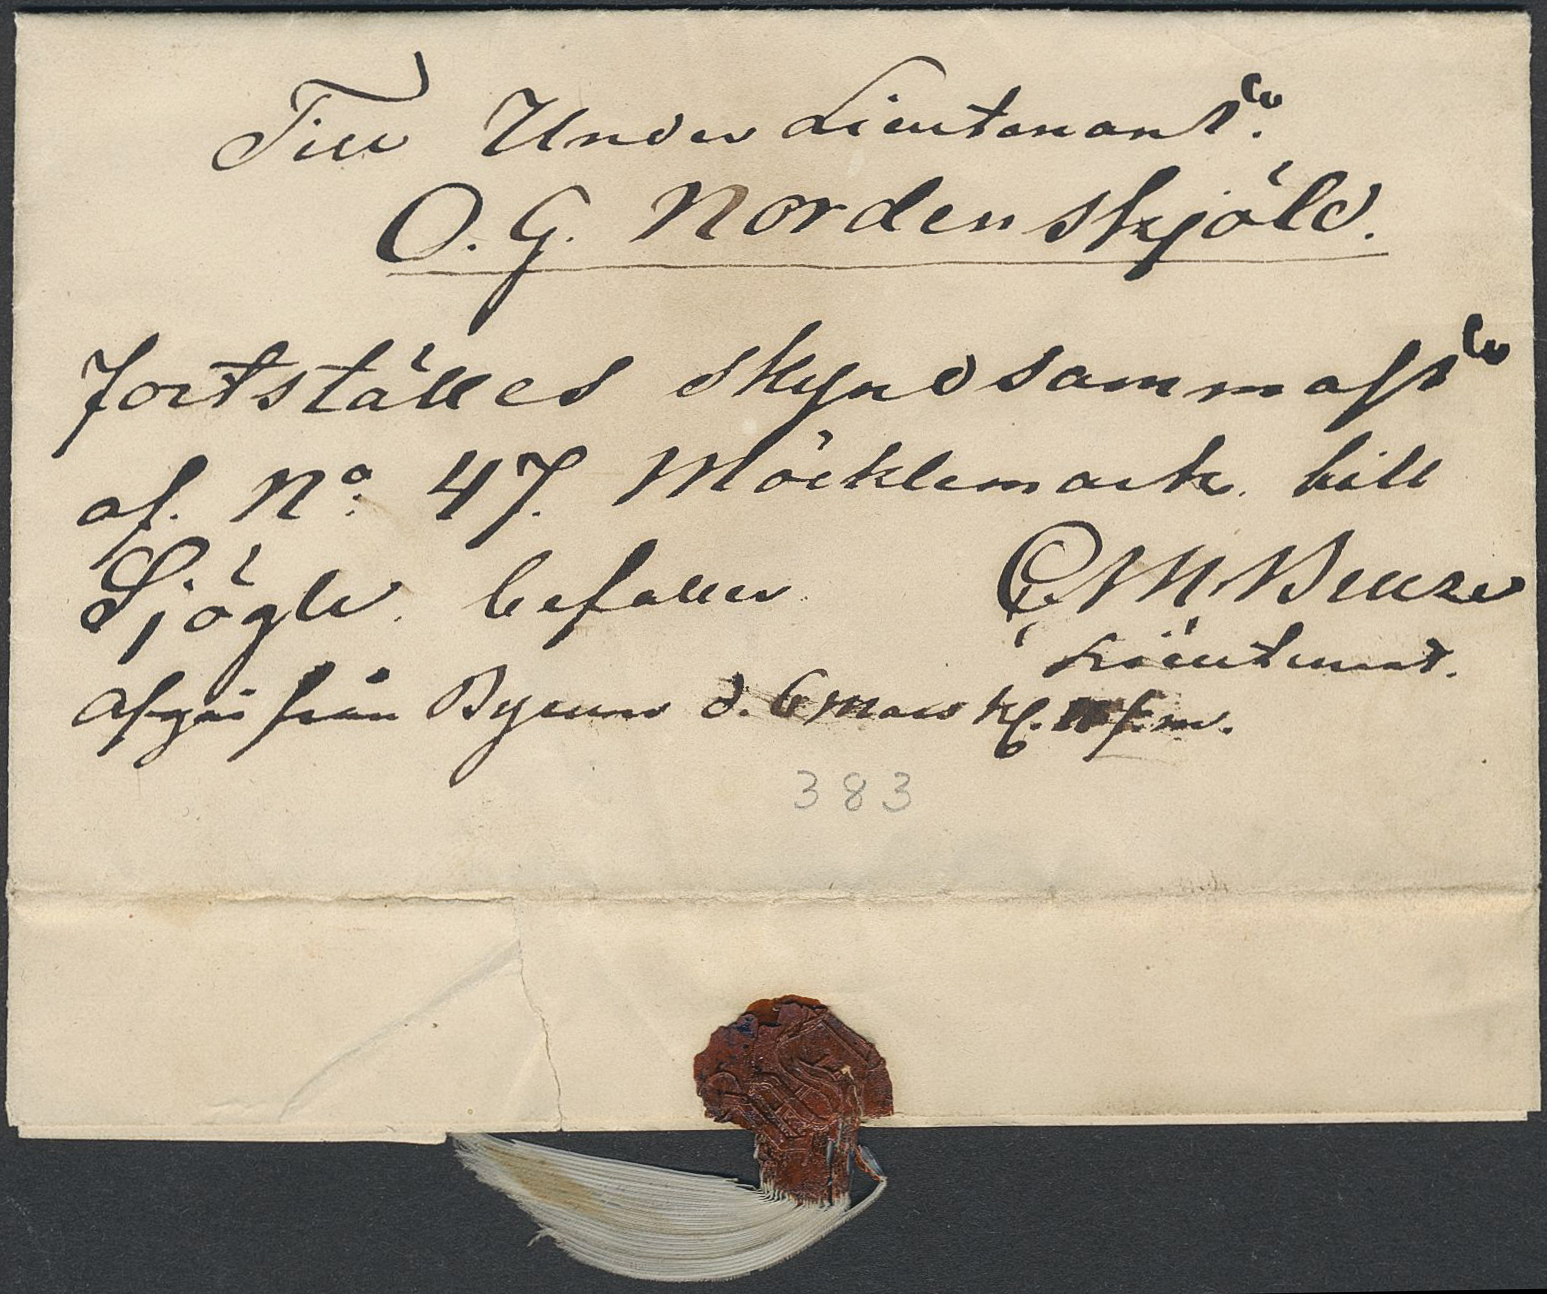 Till Under Lieutenanten
O. G. Nordenskjöld.
fortställes skyndsammast
af. No. 47. Möcklemark. till
Sjögle. befaller
C M Bruze
Lieutenant.
Afgår från Byerum d. 6 Mars kl. f.m.
383